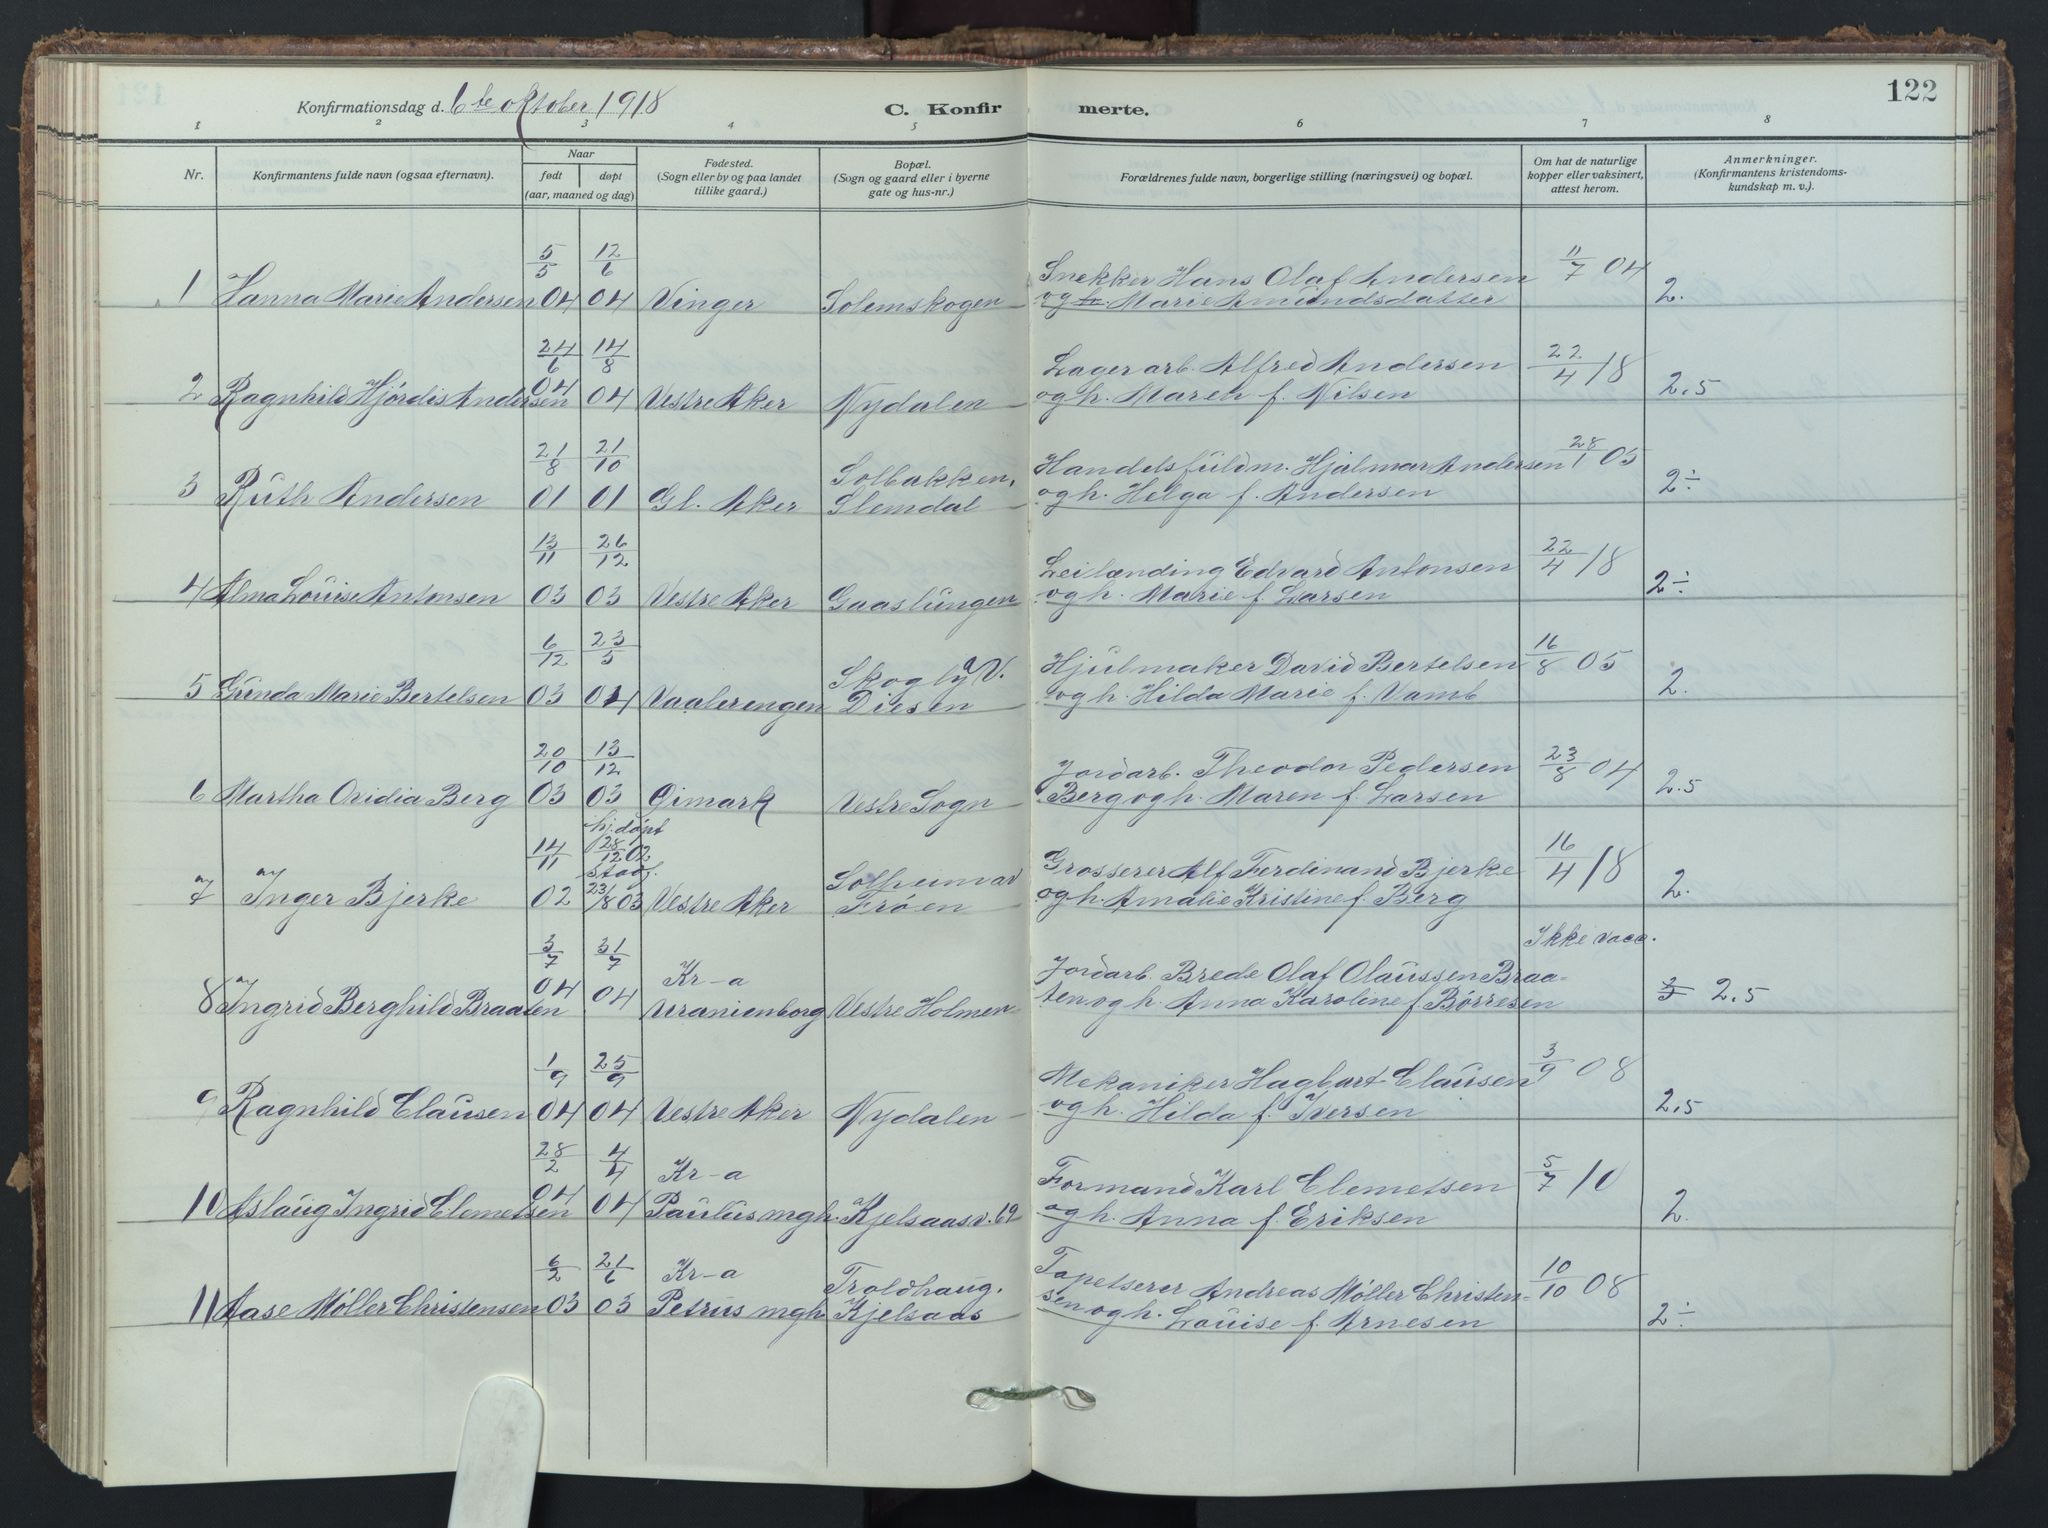 122
Konfirmationsdag d. 6te oktober 1918 C. Konfir merte.
1 2 3 4 5 6 7 8
Nr. Konfirmantens fulde navn (ogsaa efternavn). Naar født døpt (aar, maaned og dag) Fødested. (Sogn eller by og paa landet tillike gaard.) Bopæl. (Sogn og gaard eller i byerne gate og hus-nr.) Forældrenes fulde navn, borgerlige stilling (næringsvei) og bopæl. Om hat de naturlige kopper eller vaksinert, attest herom. Anmerkninger. (Konfirmantens kristendoms-kundskap m. v.).
5/5 12/6 Snekker Hans Olaf Andersen 11/7 04
1 Hanna Marie Andersen 04 04 Vinger Solemskogen og h. Marie Amundsdatter 2.
24/6 14/8 Lagerarb. Alfred Andersen 22/4 18
2 Ragnhild Hjørdis Andersen 04 04 Vestre Aker Nydalen og h. Maren f. Nilsen 2,5
21/8 21/10 Solbakken, Handelsfuldm. Hjalmar Andersen 28/1 05
3 Ruth Andersen 01 01 Gl. Aker Slemdal og h. Helga f. Andersen 2÷
13/11 26/12 Leilænding Edvard Antonsen 22/4 18
4 Alma Louise Antonsen 03 03 Vestre Aker Gaaslungen og h. Marie f. Larsen 2÷
6/12 23/5 Skogly V. Hjulmaker David Bertelsen 16/8 05
5 Gunda Marie Bertelsen 03 04 Vaalerengen Diesen og h. Hilda Marie f. Vamb 2.
20/10 13/12 Jordarb. Theodor Pedersen 23/8 04
6 Martha Ovidia Berg 03 03 Gimark Vestre Sogn Berg og h. Maren f. Larsen 2.5
hj. døpt
14/11 28/12 02 Solheim av Grosserer Alf Ferdinand Bjerke 16/4 18
stadf.
7 Inger Bjerke 02 23/8 03 Vestre Aker Frøen og h. Amalie Kristine f. Berg 2.
3/7 31/7 Kr-a Jordarb. Brede Olaf Olaussen Braa- Ikke vacc.
8 Ingrid Berghild Braaten 04 04 Uranienborg Vestre Holmen ten og h. Anna Karoline f. Børresen 3 2.5
1/9 25/9 Mekaniker Hagbart Clausen 3/9 08
9 Ragnhild Clausen 04 04 Vestre Aker Nydalen og h. Hilda f. Iversen 2,5
28/2 4/4 Kr-a Formand Karl Clemetsen 5/7 10
10 Aslaug Ingrid Clemetsen 04 04 Paulus mgh. Kjelsaasv. 62 og h. Anna f. Eriksen 2.
6/2 21/6 Kr-a Troldhaug. Tapetserer Andreas Møller Christen- 10/10 08
11 Aase Møller Christensen 03 03 Petrus mgh Kjelsaas sen og h. Louise f. Arnesen 2÷